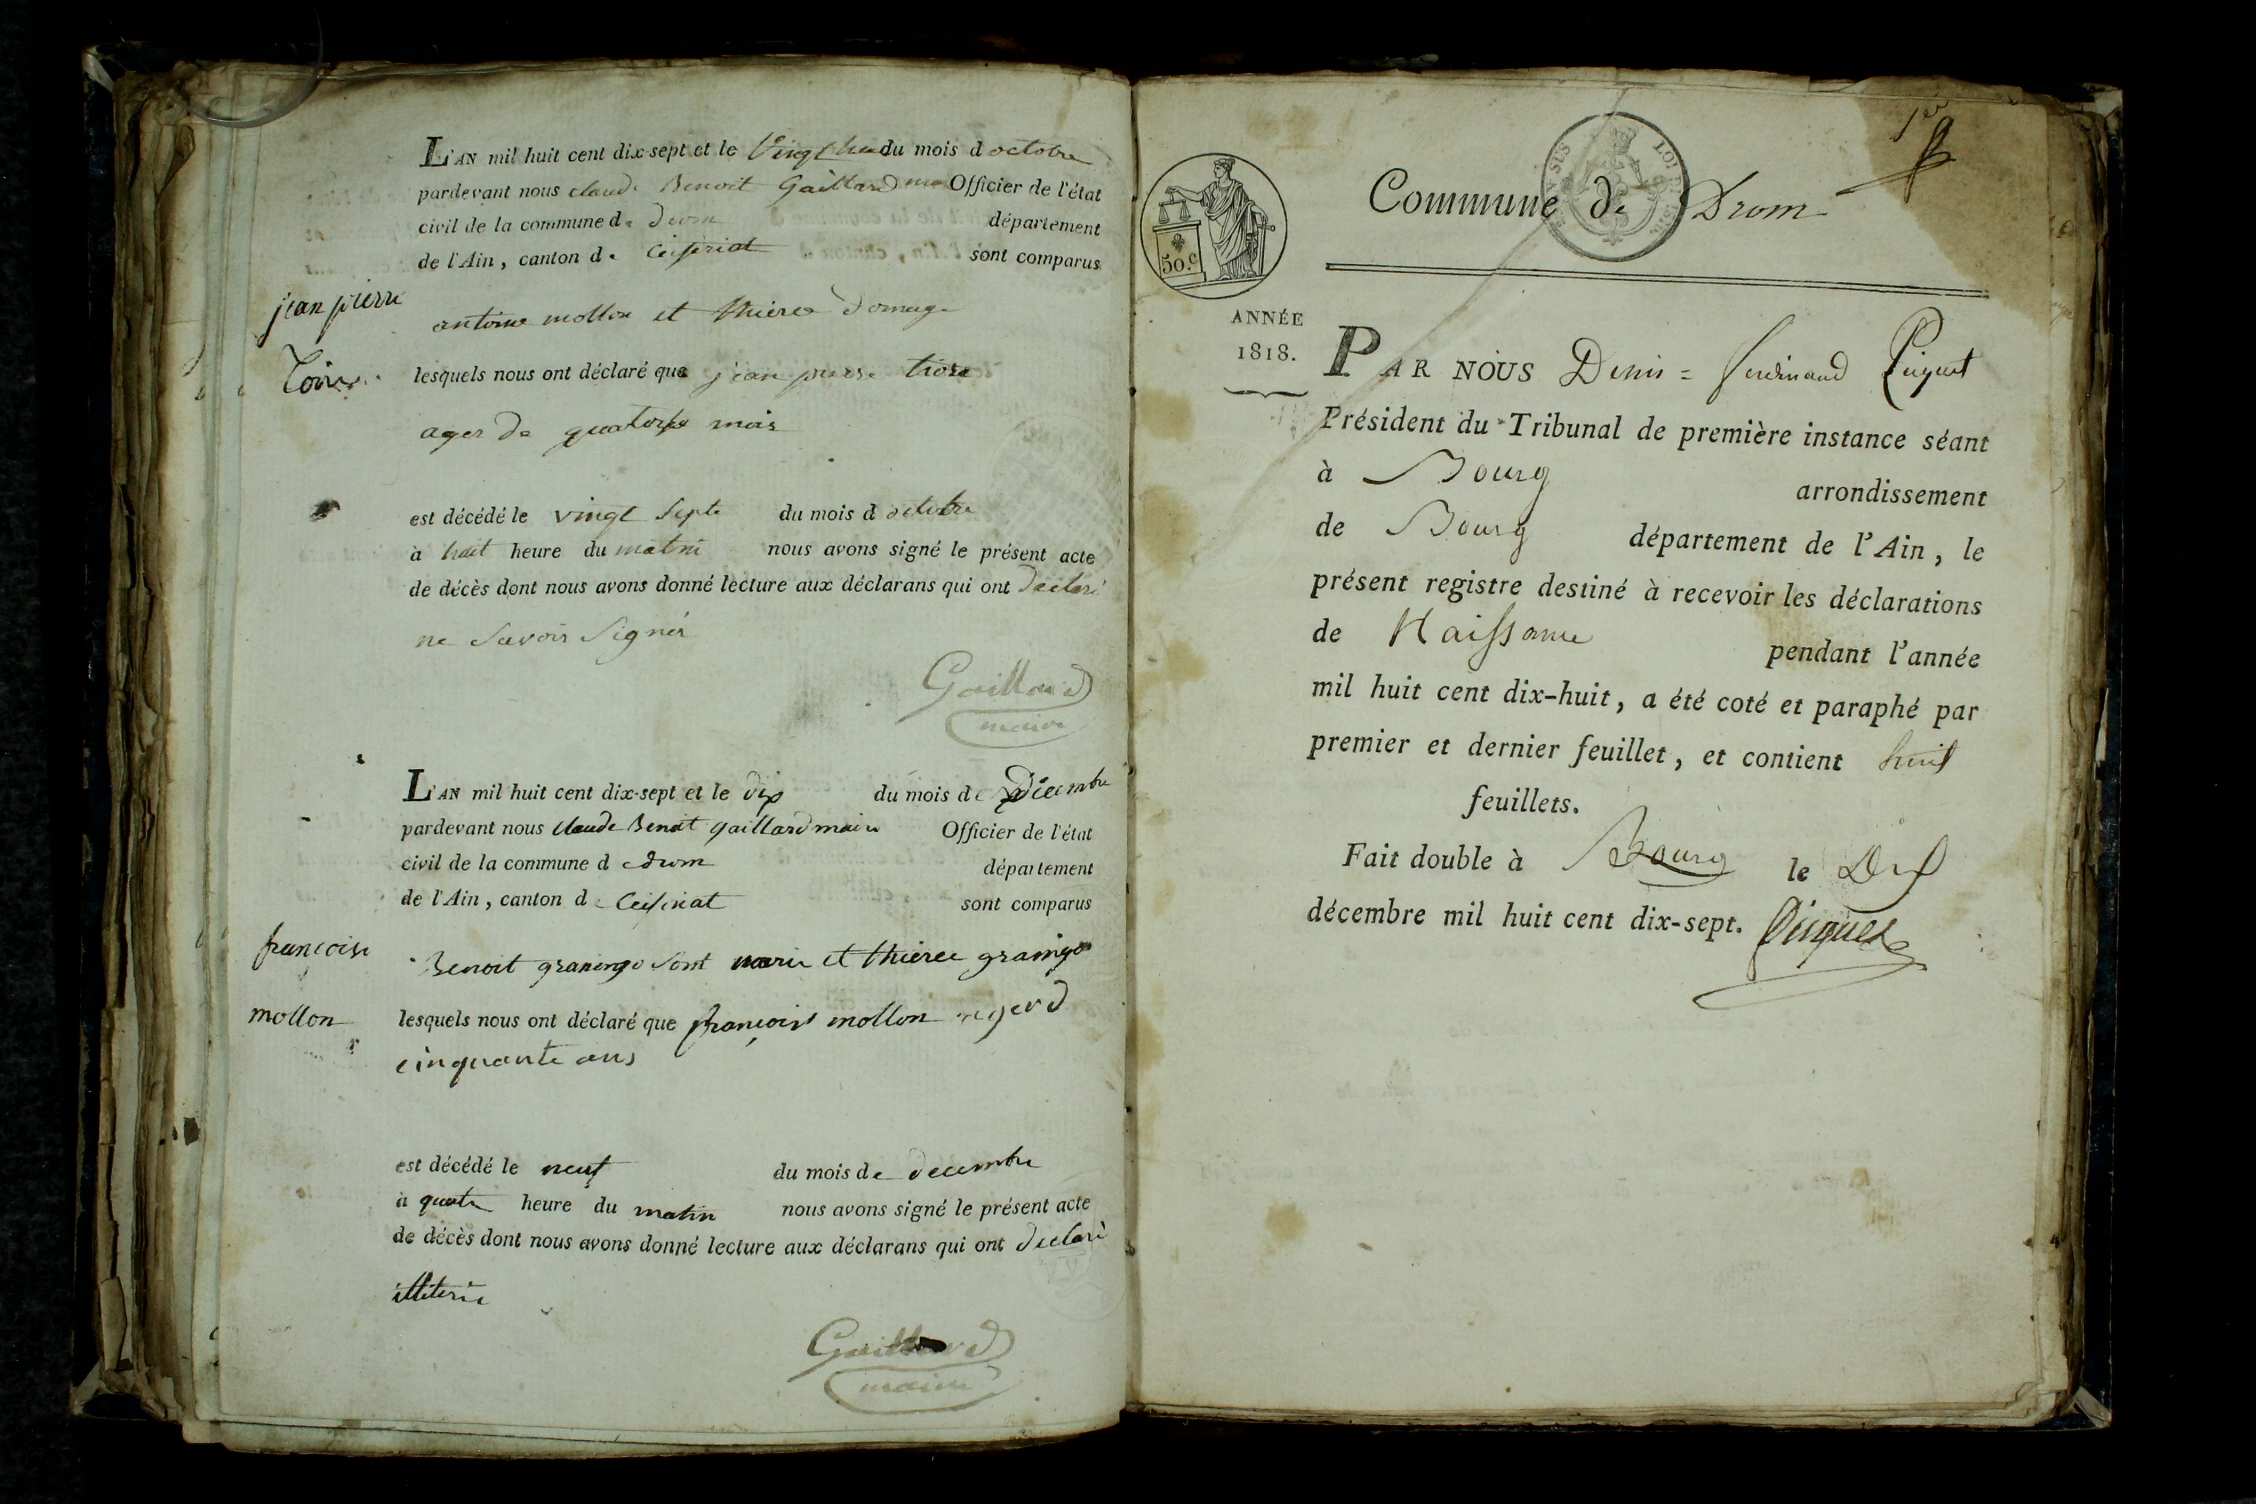 L'AN mil huit cent dix-sept et le Vingt huit du mois d octobre
pardevant nous claude Benoit Gaillard Officier de l'état
civil de la commune de drom département
de l'Ain, canton de Ceiseriat sont comparus
jean pierre
antoine mollon et thierce domage
lesquels nous ont déclaré que jean pierre
ager de quatorse mois
est décédé le vingt septe du mois d octobre
à huit heure du matin nous avons signé le présent acte
de décès dont nous avons donné lecture aux déclarans qui ont declaré
ne savoir signer
Gaillard
maire
L'AN mil huit cent dix-sept et le dix du mois de décembre
pardevant nous claude Benoit gaillard maire Officier de l'état
civil de la commune d drom département
de l'Ain, canton de Ceiseriat sont comparus
francois
Benoit sont et thierce
mollon
lesquels nous ont déclaré que françois mollon
cinquante ans
est décédé le neuf du mois de decembre
à quatre heure du matin nous avons signé le présent acte
de décès dont nous avons donné lecture aux déclarans qui ont declaré
Gaillard
maire
1er
Commune de Drom
50.c
ANNÉE
1818.
PAR NOUS Denis = ferdinand Piquet
Président du Tribunal de première instance séant
à Bourg arrondissement
de Bourg département de l'Ain, le
présent registre destiné à recevoir les déclarations
de Naissance pendant l'année
mil huit cent dix-huit, a été coté et paraphé par
premier et dernier feuillet, et contient huit
feuillets.
Fait double à Bourg le Dix
décembre mil huit cent dix-sept. Piquet